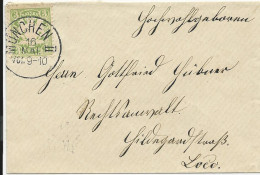 MÜNCHEN II
16
MAI
VOR. 9-10
Hochwohlgeboren
Herrn Gottfried Hübner
Rechtsanwalt
Hildegardstraß
Loco.